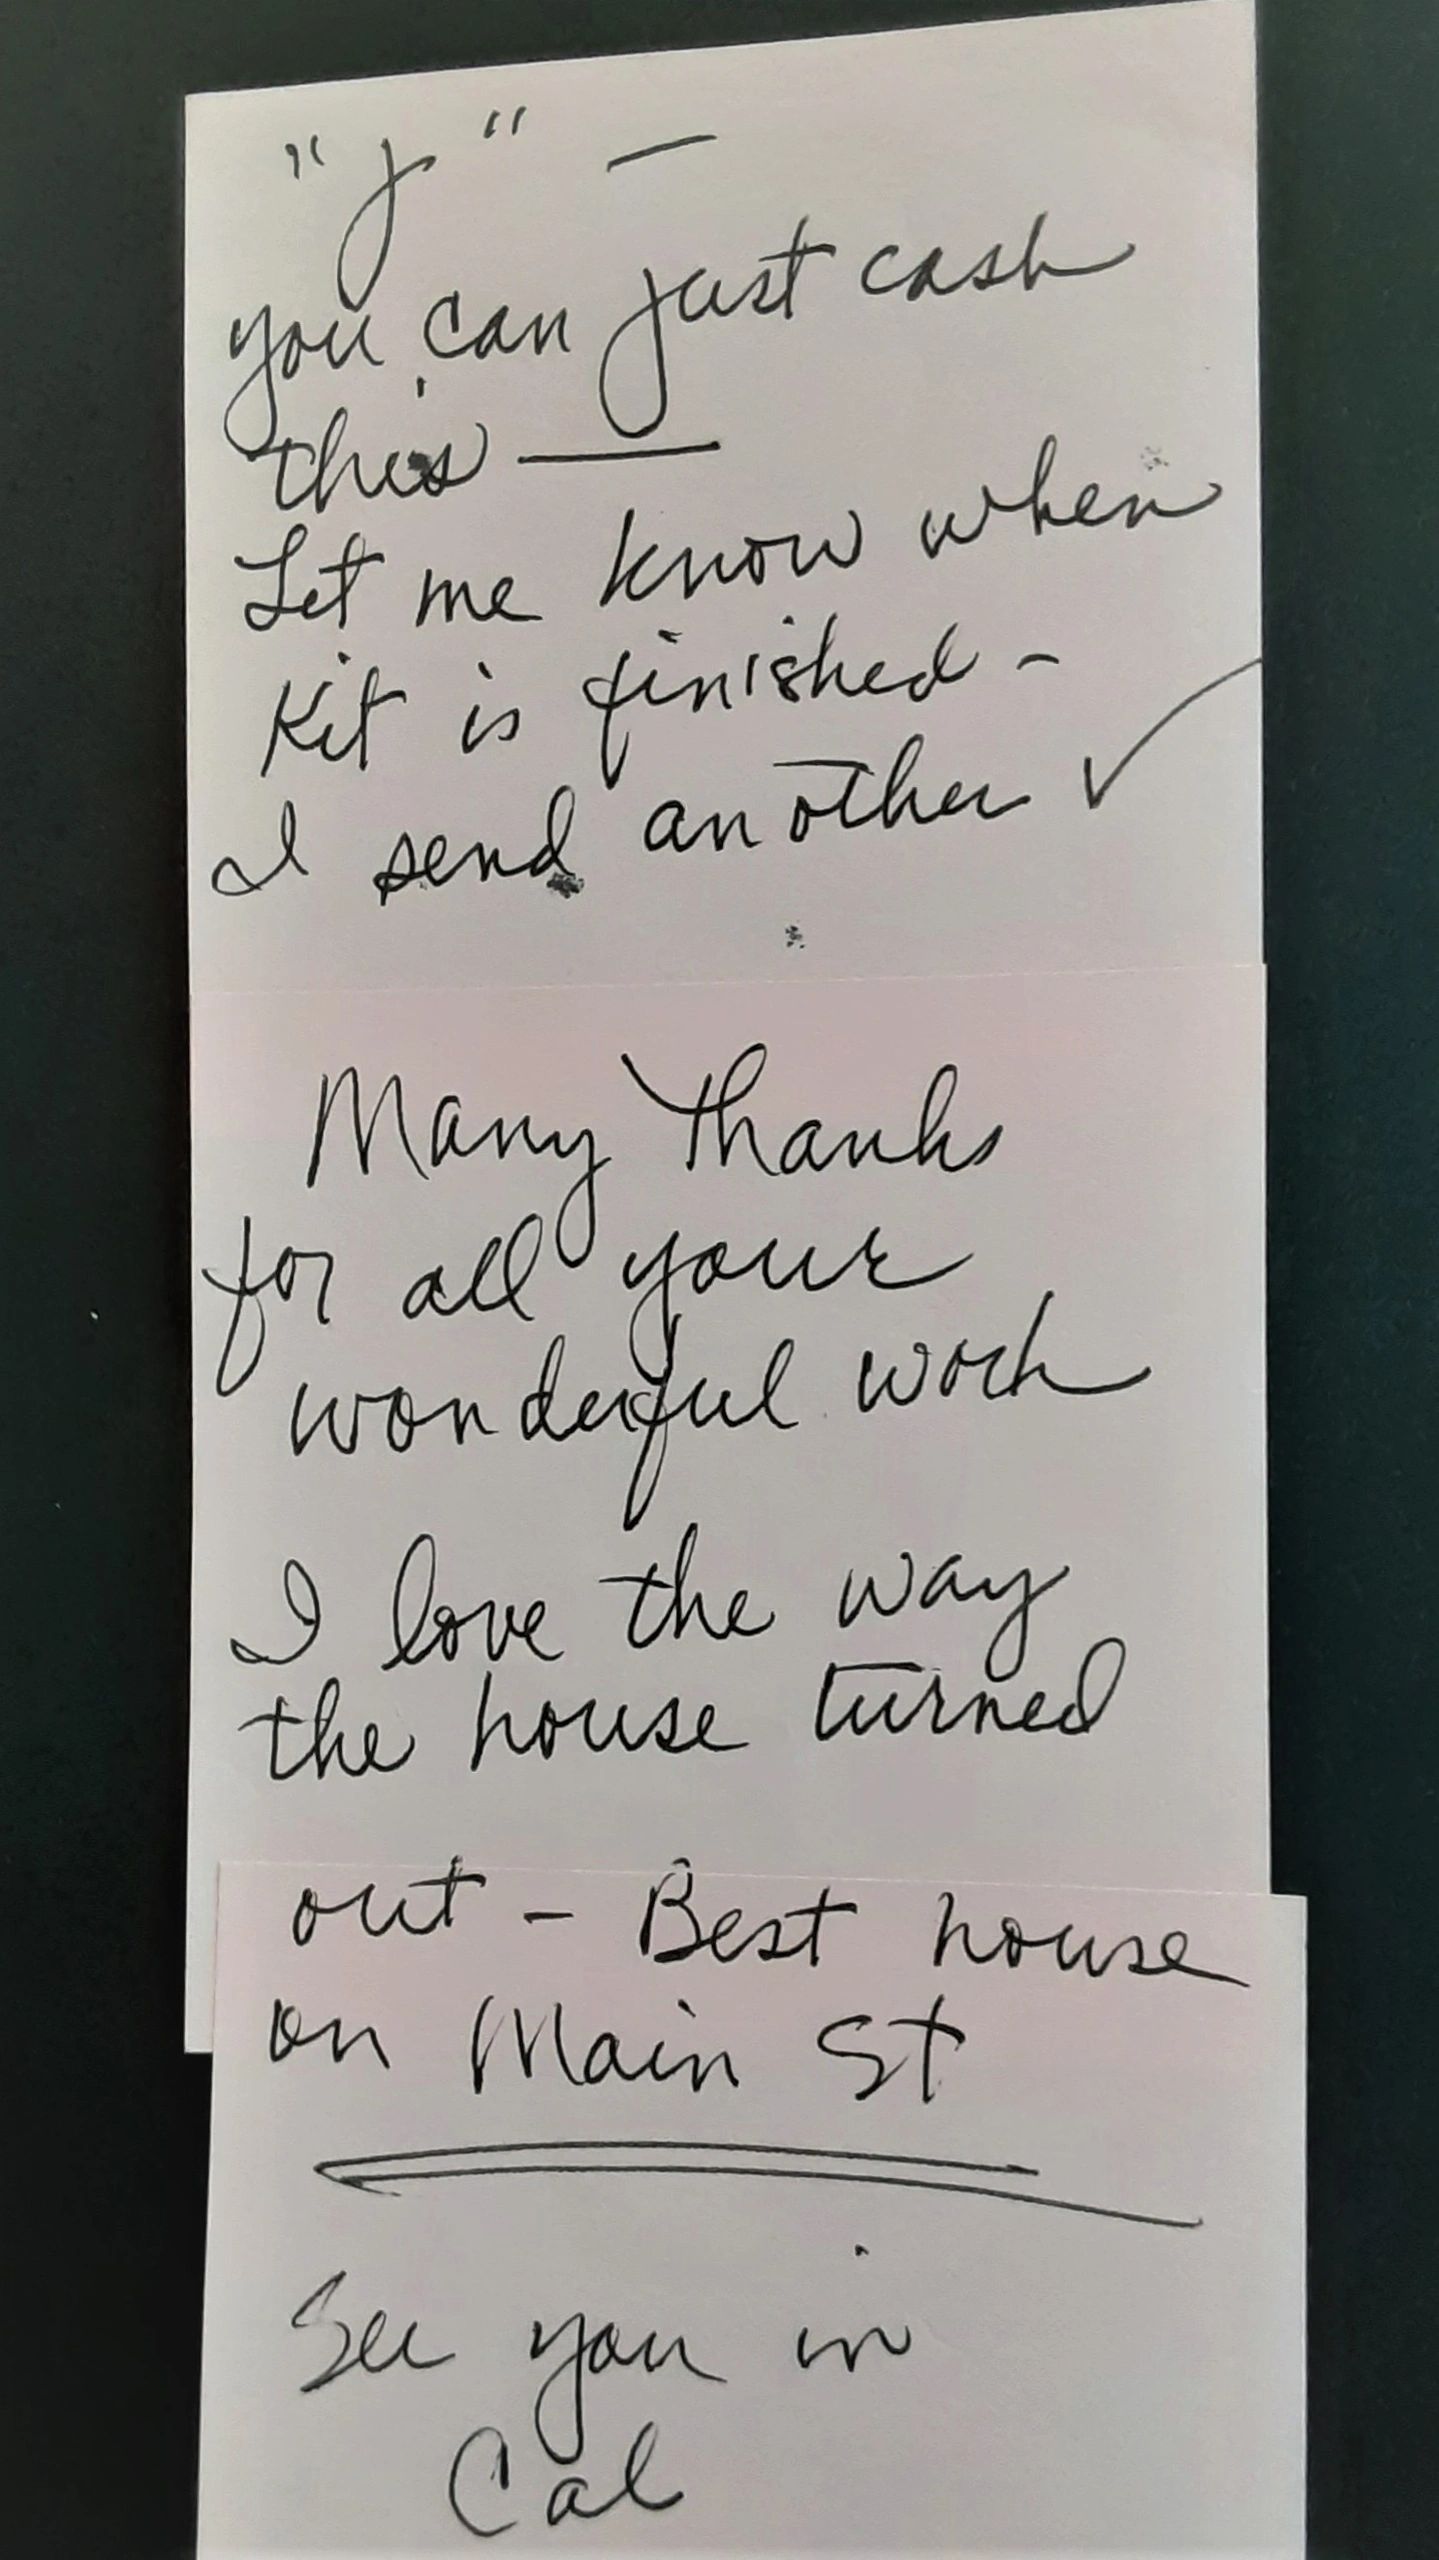 "J" —
you can just cash
this —
Let me know when
Kit is finished -
I send another ✓
Many Thanks
for all your
wonderful work
I love the way
the house turned
out - Best house
on Main St
See you in
Cal